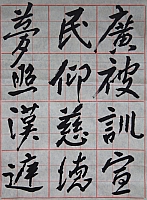 廣被訓宣
民仰慈德
夢照漢遊